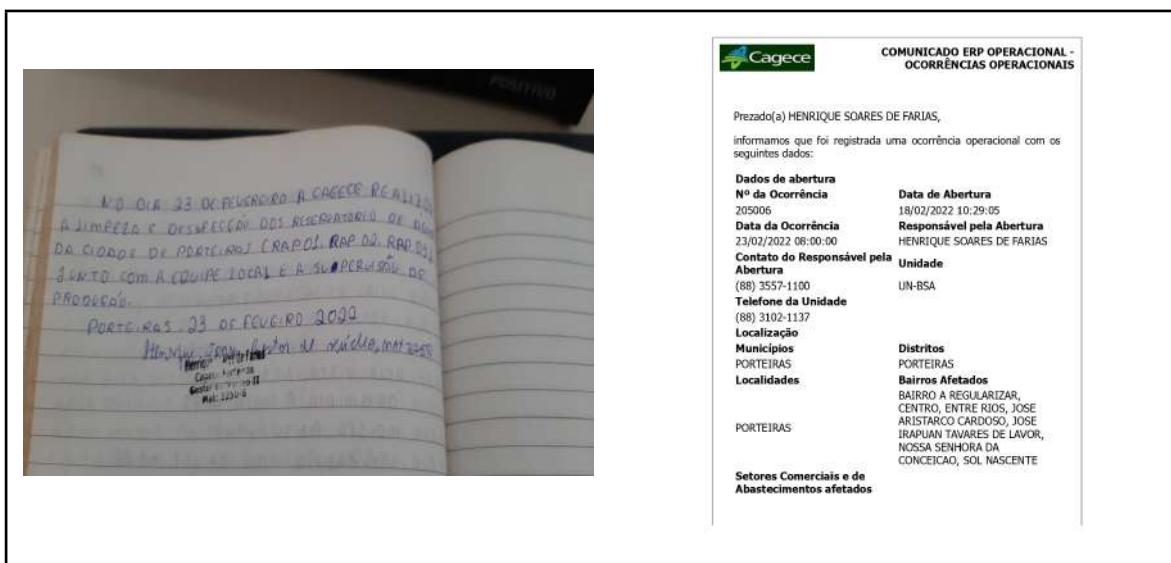 POSITIVO
NO DIA 23 DE FEVEREIRO A CAGECE
A LIMPEZA E DOS RESERVATORIO DE
DA CIDADE DE PORTEIRAS (RAP.01, RAP.02, RAP.03)
JUNTO COM A EQUIPE LOCAL E A SUPERVISÃO DE
PRODUÇÃO.
PORTEIRAS, 23 DE FEVEIRO 2022
Gestor de núcleo, MAT
Cagece
COMUNICADO ERP OPERACIONAL -
OCORRÊNCIAS OPERACIONAIS
Prezado(a) HENRIQUE SOARES DE FARIAS,
informamos que foi registrada uma ocorrência operacional com os
seguintes dados:
Dados de abertura
Nº da Ocorrência Data de Abertura
205006 18/02/2022 10:29:05
Data da Ocorrência Responsável pela Abertura
23/02/2022 08:00:00 HENRIQUE SOARES DE FARIAS
Contato do Responsável pela
Abertura Unidade
(88) 3557-1100 UN-BSA
Telefone da Unidade
(88) 3102-1137
Localização
Municípios Distritos
PORTEIRAS PORTEIRAS
Localidades Bairros Afetados
PORTEIRAS
BAIRRO A REGULARIZAR,
CENTRO, ENTRE RIOS, JOSE
ARISTARCO CARDOSO, JOSE
IRAPUAN TAVARES DE LAVOR,
NOSSA SENHORA DA
CONCEICAO, SOL NASCENTE
Setores Comerciais e de
Abastecimentos afetados